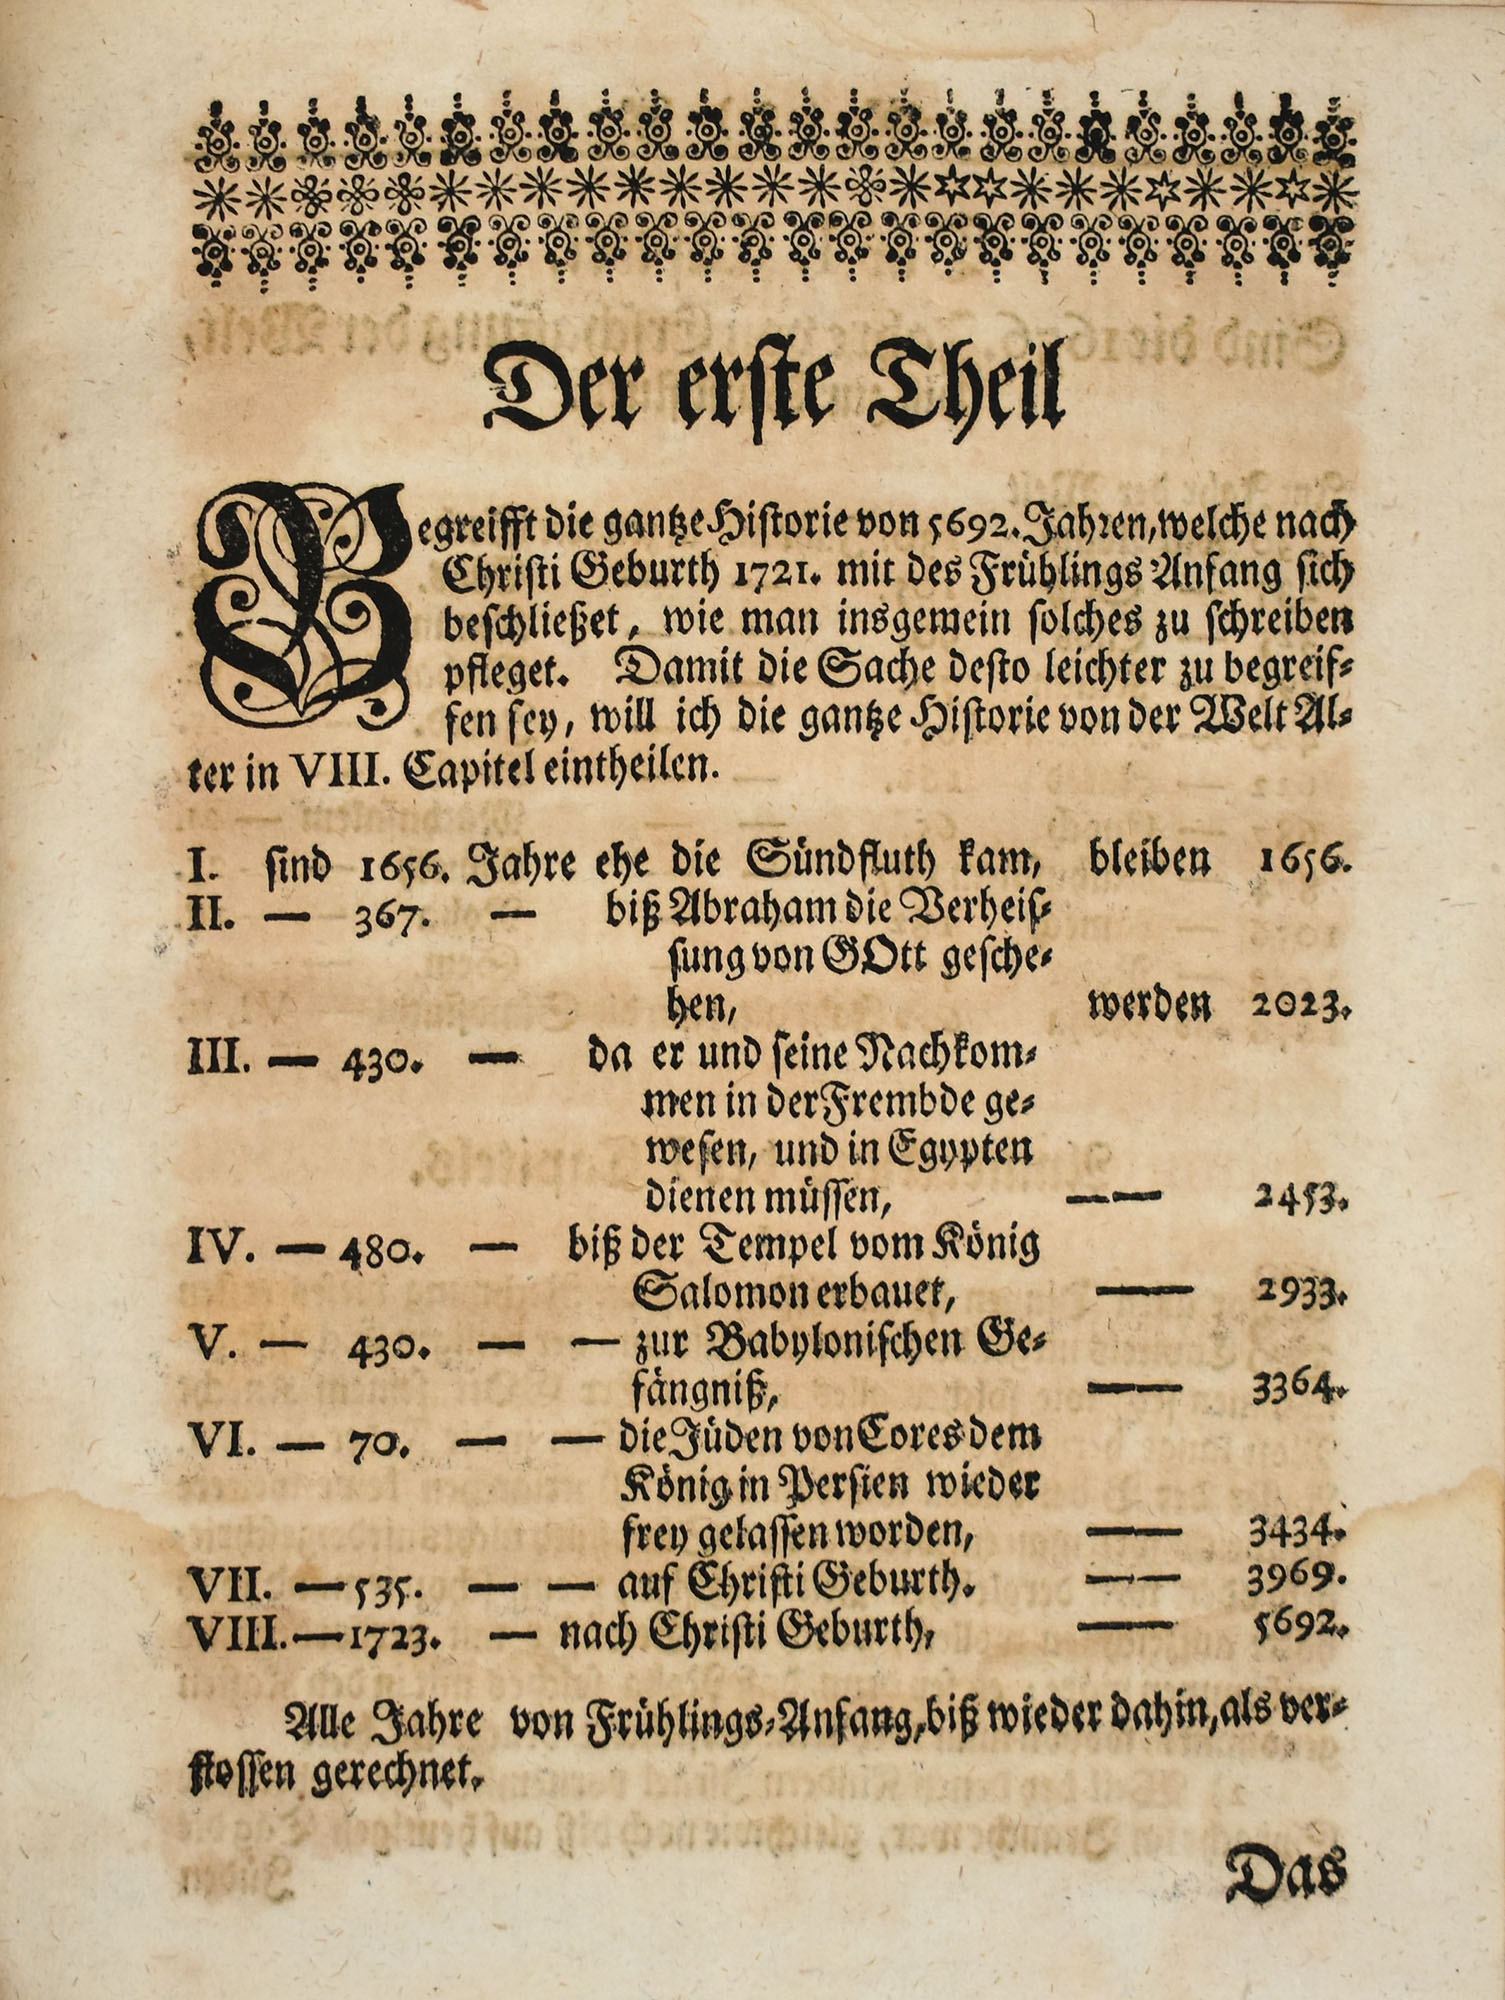 Der erste Theil
Begreifft die gantze Historie von 5692. Jahren, welche nach
Christi Geburth 1721. mit des Frühlings Anfang sich
beschließet, wie man insgemein solches zu schreiben
pfleget. Damit die Sache desto leichter zu begreif-
fen sey, will ich die gantze Historie von der Welt Al-
ter in VIII. Capitel eintheilen.
I. sind 1656. Jahre ehe die Sündfluth kam, bleiben 1656.
II. — 367. — biß Abraham die Verheis-
sung von GOtt gesche-
hen, werden 2023.
III. — 430. — da er und seine Nachkom-
men in der Frembde ge-
wesen, und in Egypten
dienen müssen, —— 2453.
IV. — 480. — biß der Tempel vom König
Salomon erbauet, —— 2933.
V. — 430. — — zur Babylonischen Ge-
fängniß, —— 3364.
VI. — 70. — — die Jüden von Cores dem
König in Persien wieder
frey gelassen worden, —— 3434.
VII. — 535. — — auf Christi Geburth. —— 3969.
VIII. — 1723. — nach Christi Geburth, —— 5692.
Alle Jahre von Frühlings-Anfang, biß wieder dahin, als ver-
flossen gerechnet.
Das